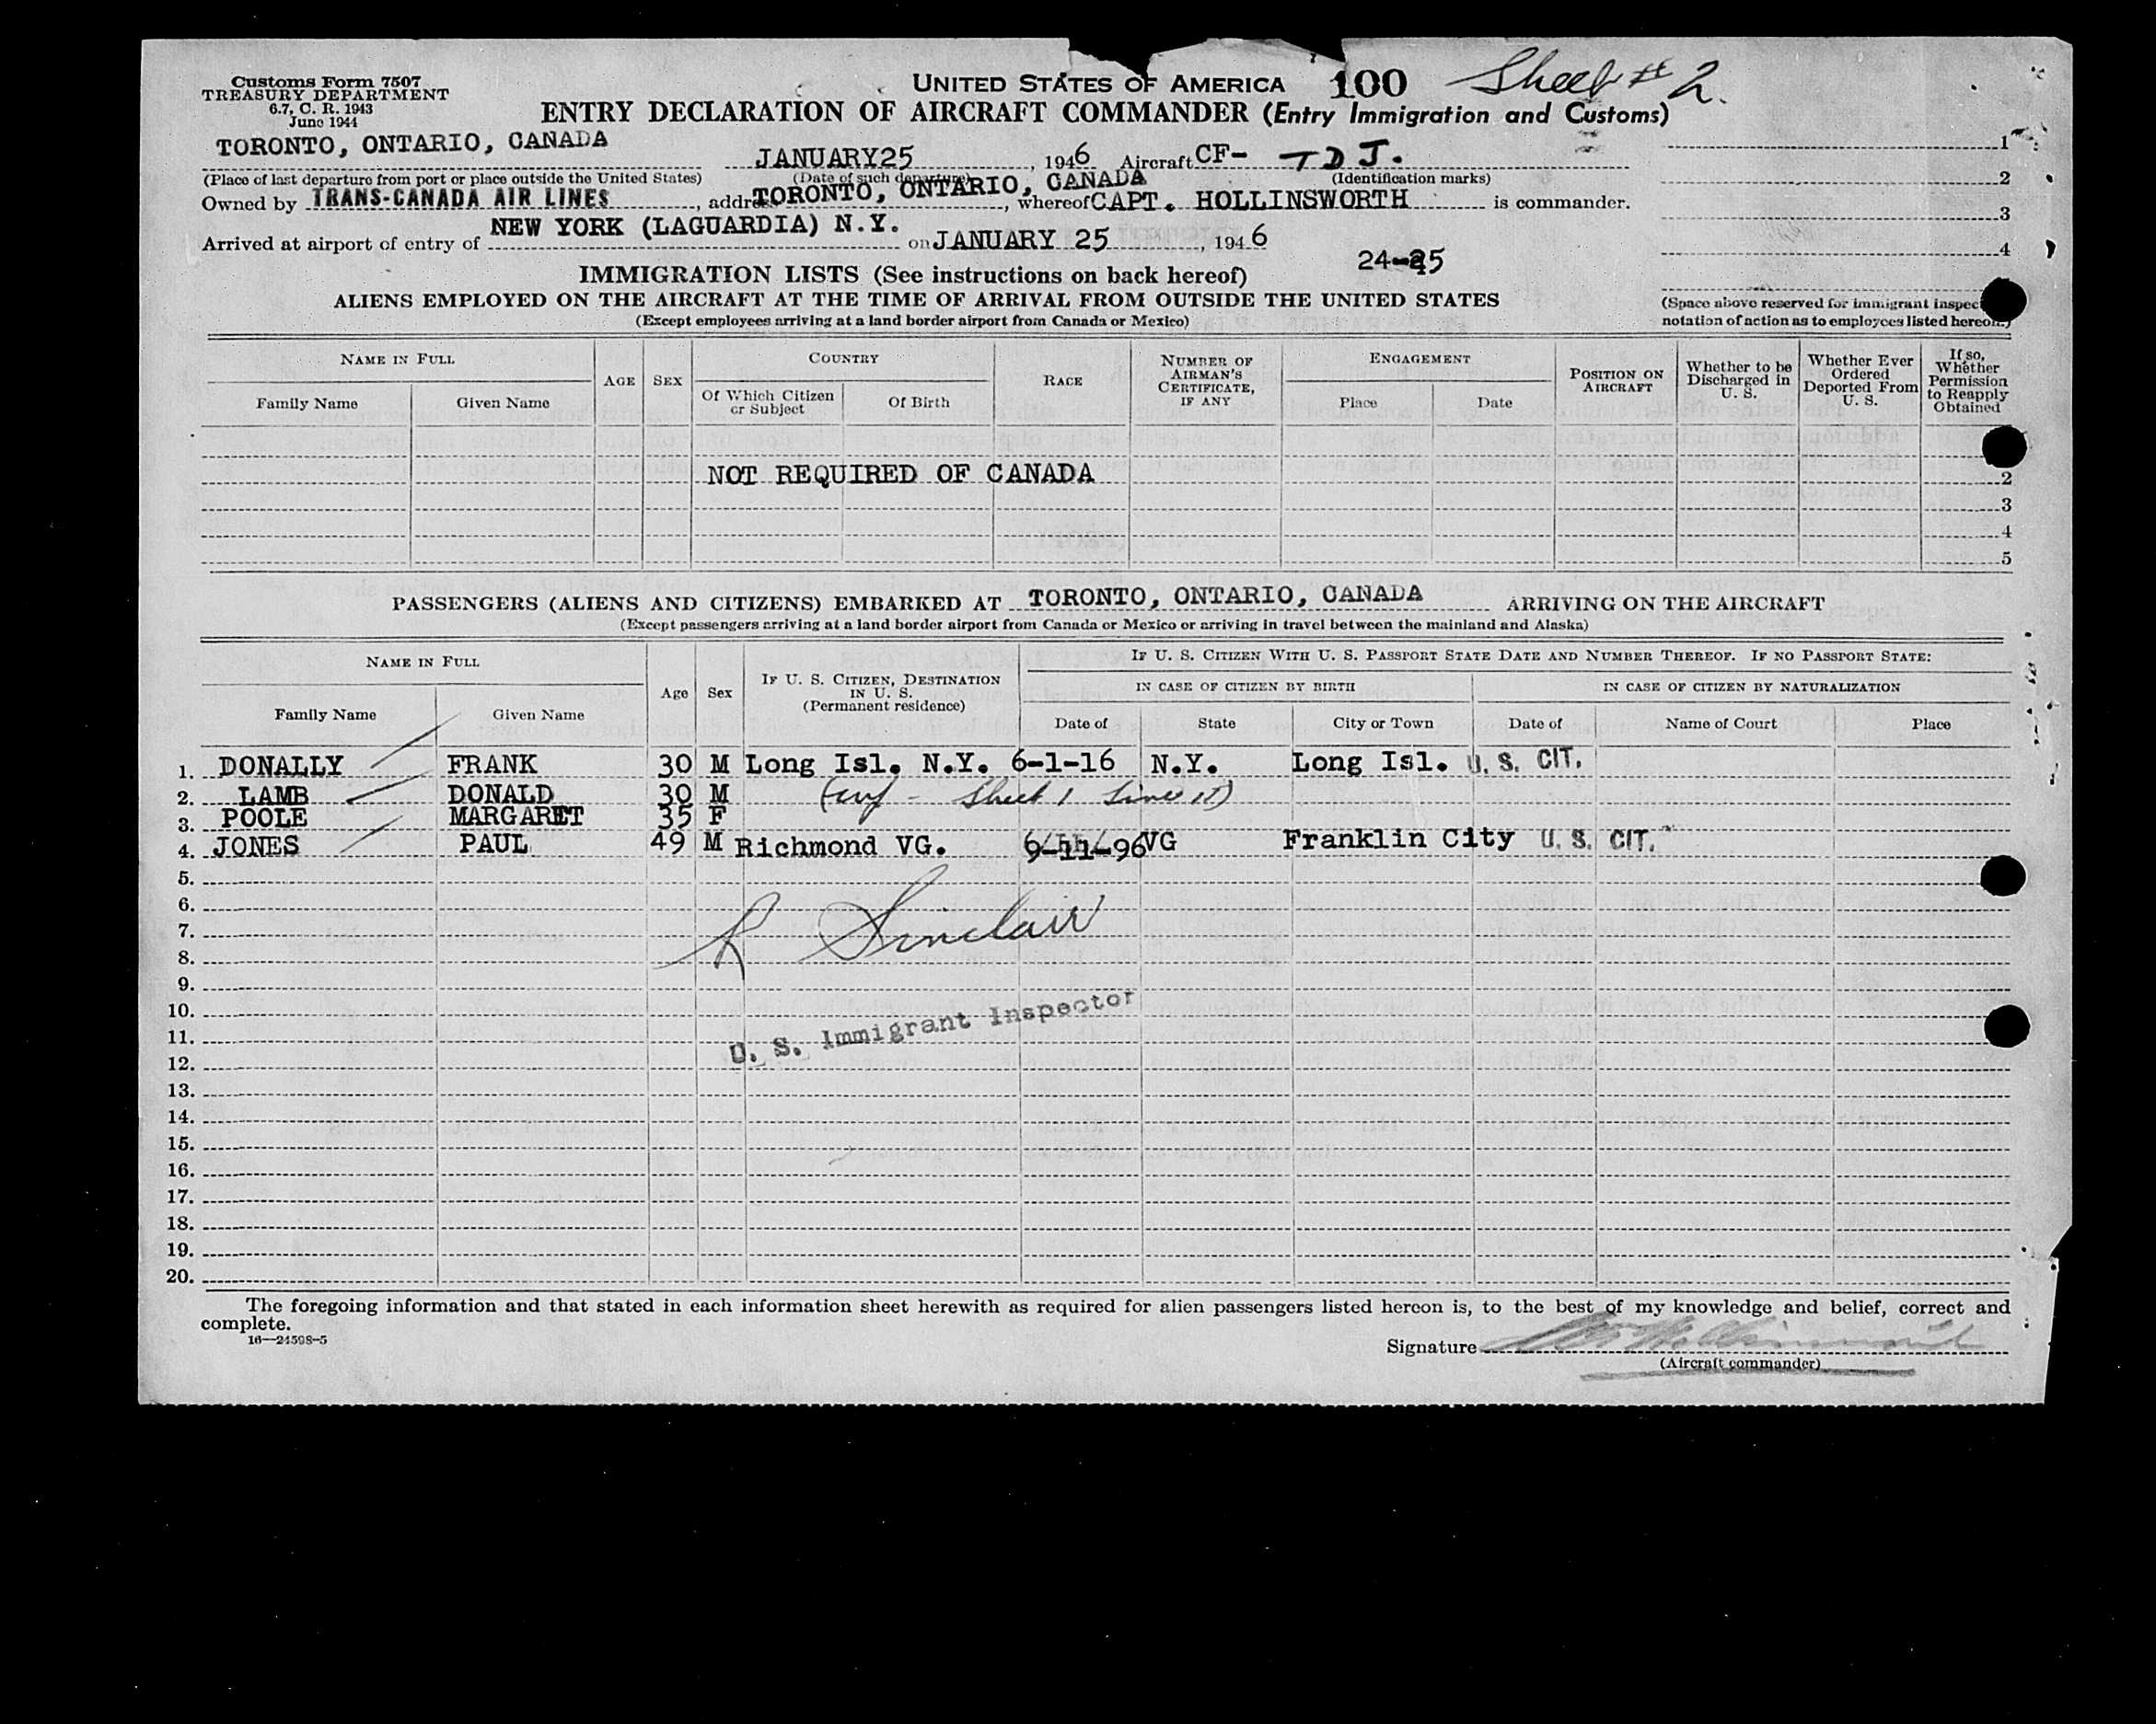 Customs Form 7507
TREASURY DEPARTMENT
6.7, C. R. 1943
June 1944
UNITED STATES OF AMERICA 100 Sheet # 2.
ENTRY DECLARATION OF AIRCRAFT COMMANDER (Entry Immigration and Customs)
TORONTO, ONTARIO, CANADA JANUARY25, 1946 Aircraft CF- TDJ.
(Place of last departure from port or place outside the United States) (Date of such departure) (Identification marks)
Owned by TRANS-CANADA AIR LINES, address TORONTO, ONTARIO, CANADA, whereof CAPT. HOLLINSWORTH is commander.
Arrived at airport of entry of NEW YORK (LAGUARDIA) N.Y. on JANUARY 25, 1946
1
2
3
4
24-25
IMMIGRATION LISTS (See instructions on back hereof)
ALIENS EMPLOYED ON THE AIRCRAFT AT THE TIME OF ARRIVAL FROM OUTSIDE THE UNITED STATES
(Except employees arriving at a land border airport from Canada or Mexico)
(Space above reserved for immigrant inspec
notation of action as to employees listed hereon.)
NAME IN FULL AGE SEX COUNTRY RACE NUMBER OF AIRMAN'S CERTIFICATE, IF ANY ENGAGEMENT POSITION ON AIRCRAFT Whether to be Discharged in U. S. Whether Ever Ordered Deported From U. S. If so, Whether Permission to Reapply Obtained
Family Name Given Name Of Which Citizen or Subject Of Birth Place Date
NOT REQUIRED OF CANADA 2
3
4
5
PASSENGERS (ALIENS AND CITIZENS) EMBARKED AT TORONTO, ONTARIO, CANADA ARRIVING ON THE AIRCRAFT
(Except passengers arriving at a land border airport from Canada or Mexico or arriving in travel between the mainland and Alaska)
NAME IN FULL Age Sex IF U. S. CITIZEN, DESTINATION IN U. S. (Permanent residence) IF U. S. CITIZEN WITH U. S. PASSPORT STATE DATE AND NUMBER THEREOF. IF NO PASSPORT STATE:
IN CASE OF CITIZEN BY BIRTH IN CASE OF CITIZEN BY NATURALIZATION
Family Name Given Name Date of State City or Town Date of Name of Court Place
1. DONALLY FRANK 30 M Long Isl. N.Y. 6-1-16 N.Y. Long Isl. U. S. CIT.
2. LAMB DONALD 30 M Sheet 1 Line
3. POOLE MARGARET 35 F
4. JONES PAUL 49 M Richmond VG. 9-11-96 VG Franklin City U. S. CIT.
5.
6.
7. R Sinclair
8.
9.
10.
11. U. S. Immigrant Inspector
12.
13.
14.
15.
16.
17.
18.
19.
20.
The foregoing information and that stated in each information sheet herewith as required for alien passengers listed hereon is, to the best of my knowledge and belief, correct and
complete.
16—24598-5
Signature
(Aircraft commander)